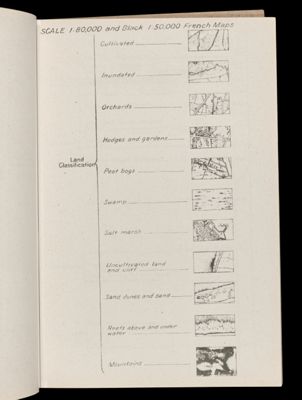 SCALE 1:80,000 and Black 1:50,000 French Maps
Cultivated
Inundated
Orchards
Hedges and gardens
Land
Classification
Peat bogs
Swamp
Salt marsh
Uncultivated land
and cliff
Sand dunes and sand
Reefs above and under
water
Mountains